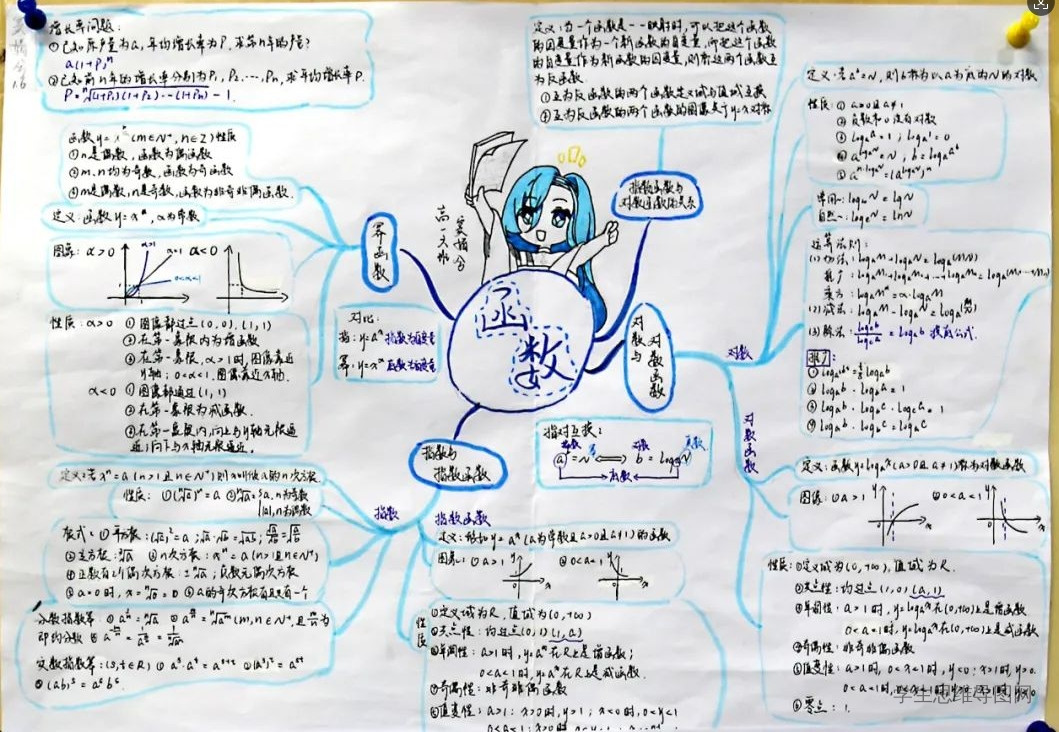 增长率问题:
①已知原产量为a,年均增长率为P,求第n年的产量?
a(1+P)ⁿ
②已知前n年的增长率分别为P₁,P₂…,Pₙ,求平均增长率P.
P=ⁿ√(1+P₁)(1+P₂)…(1+Pₙ) - 1.
①n是偶数,函数为偶函数
②m、n均为奇数,函数为奇函数
③m是偶数,n是奇数,函数为非奇非偶函数.
定义:函数y=x^α,α为常数
图象:α>0
α>1
α=1
0<α<1
α<0
性质:α>0 ①图象都过点(0,0),(1,1)
②在第一象限内为增函数
③在第一象限,α>1时,图象靠近
y轴;0<α<1,图象靠近x轴.
α<0 ①图象都通过(1,1)
②在第一象限为减函数.
③在第一象限内,向上与y轴无限逼
近;向下与x轴无限逼近.
幂函数
对比:
指:y=aˣ 指数为自变量
幂:y=x^α 底数为自变量
高一
函数
定义:当一个函数是一一映射时,可以把这个函数
的因变量作为一个新函数的自变量,而把这个函数
的自变量作为新函数的因变量,则称这两个函数互
为反函数
①互为反函数的两个函数定义域与值域互换
②互为反函数的两个函数的图象关于y=x对称
指数函数与
对数函数的关系
对数与
对数函数
对数
定义:若aᵇ=N,则b称为以a为底的N的对数
性质:①a>0且a≠1
②负数和0没有对数
③logₐa=1;logₐ1=0
常用:log₁₀N=lgN
自然:logₑN=lnN
运算法则:
(1)加法:logₐM+logₐN=logₐ(MN)
推广:logₐM₁+logₐM₂+…+logₐMₙ=logₐ(M₁…Mₙ)
乘方:logₐM^α=α·logₐM
(2)减法:logₐM-logₐN=logₐ(M/N)
(3)除法:log꜀b/log꜀a=logₐb 换底公式.
推广:
②logₐb·log_b a=1
③logₐb·log_b c·log꜀a=1
④logₐb·log_b c=logₐc
指对互换:
底数 指数 对数 真数
aᵇ=N ⟺ b=logₐN
底数
对数函数
定义:函数y=logₐx(a>0且a≠1)称为对数函数
图象:①a>1
②0<a<1
性质:①定义域为(0,+∞),值域为R.
②关定性:均过点(1,0)(a,1)
③单调性:a>1时,y=logₐx在(0,+∞)上是增函数
0<a<1时,y=logₐx在(0,+∞)上是减函数
④奇偶性:非奇非偶函数
⑤值变性:a>1时,0<x<1时,y<0;x>1时,y>0.
⑥零点:1.
指数与
指数函数
指数
定义:若xⁿ=a(n>1且n∈N⁺)则x叫做a的n次方根
性质:①(ⁿ√a)ⁿ=a ②ⁿ√aⁿ={a,n为奇数
|a|,n为偶数
根式:①平方根:(√a)²=a;√a·√b=√ab;√a/√b=√(a/b)
②立方根:³√a ③n次方根:xⁿ=a(n>1且n∈N⁺)
④正数有2个偶次方根:±ⁿ√a;负数无偶次方根
⑤a=0时,x=ⁿ√a=0 ⑥a的奇次方根有且只有一个
实数指数幂:(s,t∈R) ①aˢ·aᵗ=aˢ⁺ᵗ ②(aˢ)ᵗ=aˢᵗ
③(ab)ˢ=aˢbˢ
指数函数
定义:形如y=aˣ(a为常数且a>0且a≠1)的函数
图象:①a>1
②0<a<1
性质
①定义域为R,值域为(0,+∞)
②关定性:均过点(0,1)(1,a)
③单调性:a>1时,y=aˣ在R上是增函数;
0<a<1时,y=aˣ在R上是减函数.
④奇偶性:非奇非偶函数
⑤值变性:a>1:x>0时,y>1;x<0时,0<y<1
学生思维导图网